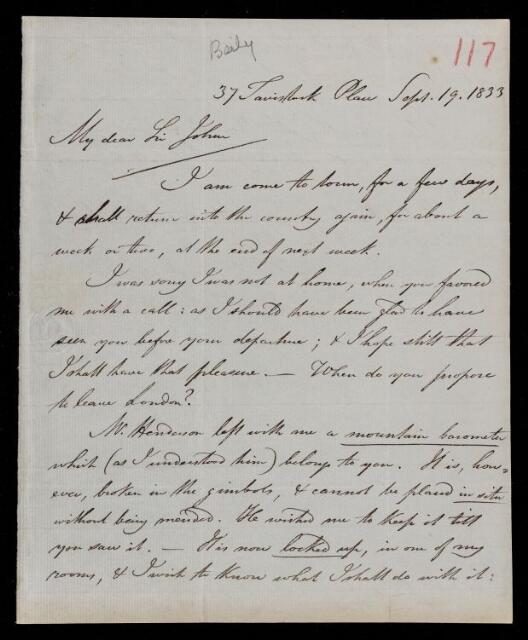 Baily
117
37 Tavistock Place Sept. 19. 1833
My dear Sir John
I am come to town, for a few days,
& shall return into the country again, for about a
week or two, at the end of next week.
I was sorry I was not at home, when you favored
me with a call: as I should have been glad to have
seen you before your departure; & I hope still that
I shall have that pleasure. — When do you propose
to leave London?
Mr. Henderson left with me a mountain barometer
which (as I understood him) belongs to you. It is, how-
ever, broken in the gimbols, & cannot be placed in situ
without being mended. He wished me to keep it till
you saw it. — It is now locked up, in one of my
rooms, & I wish to know what I shall do with it: